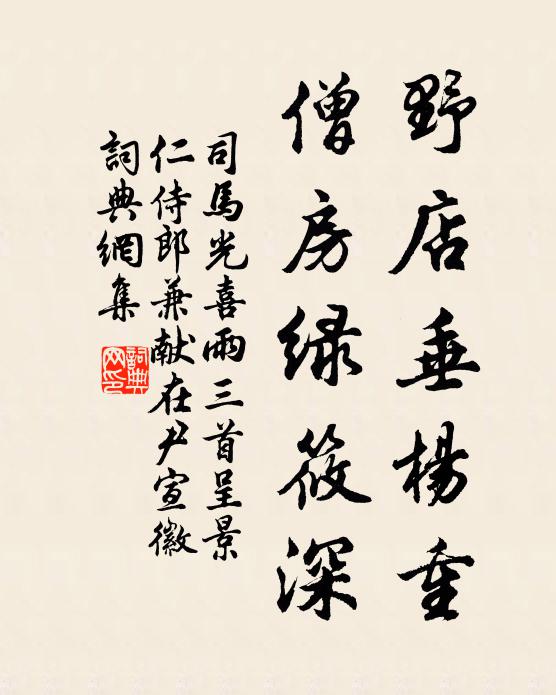 野店垂楊重
僧房緑筱深
司馬光喜雨三首呈景
仁侍郎兼献在尹宣徽
詞典網集
詞典
网印